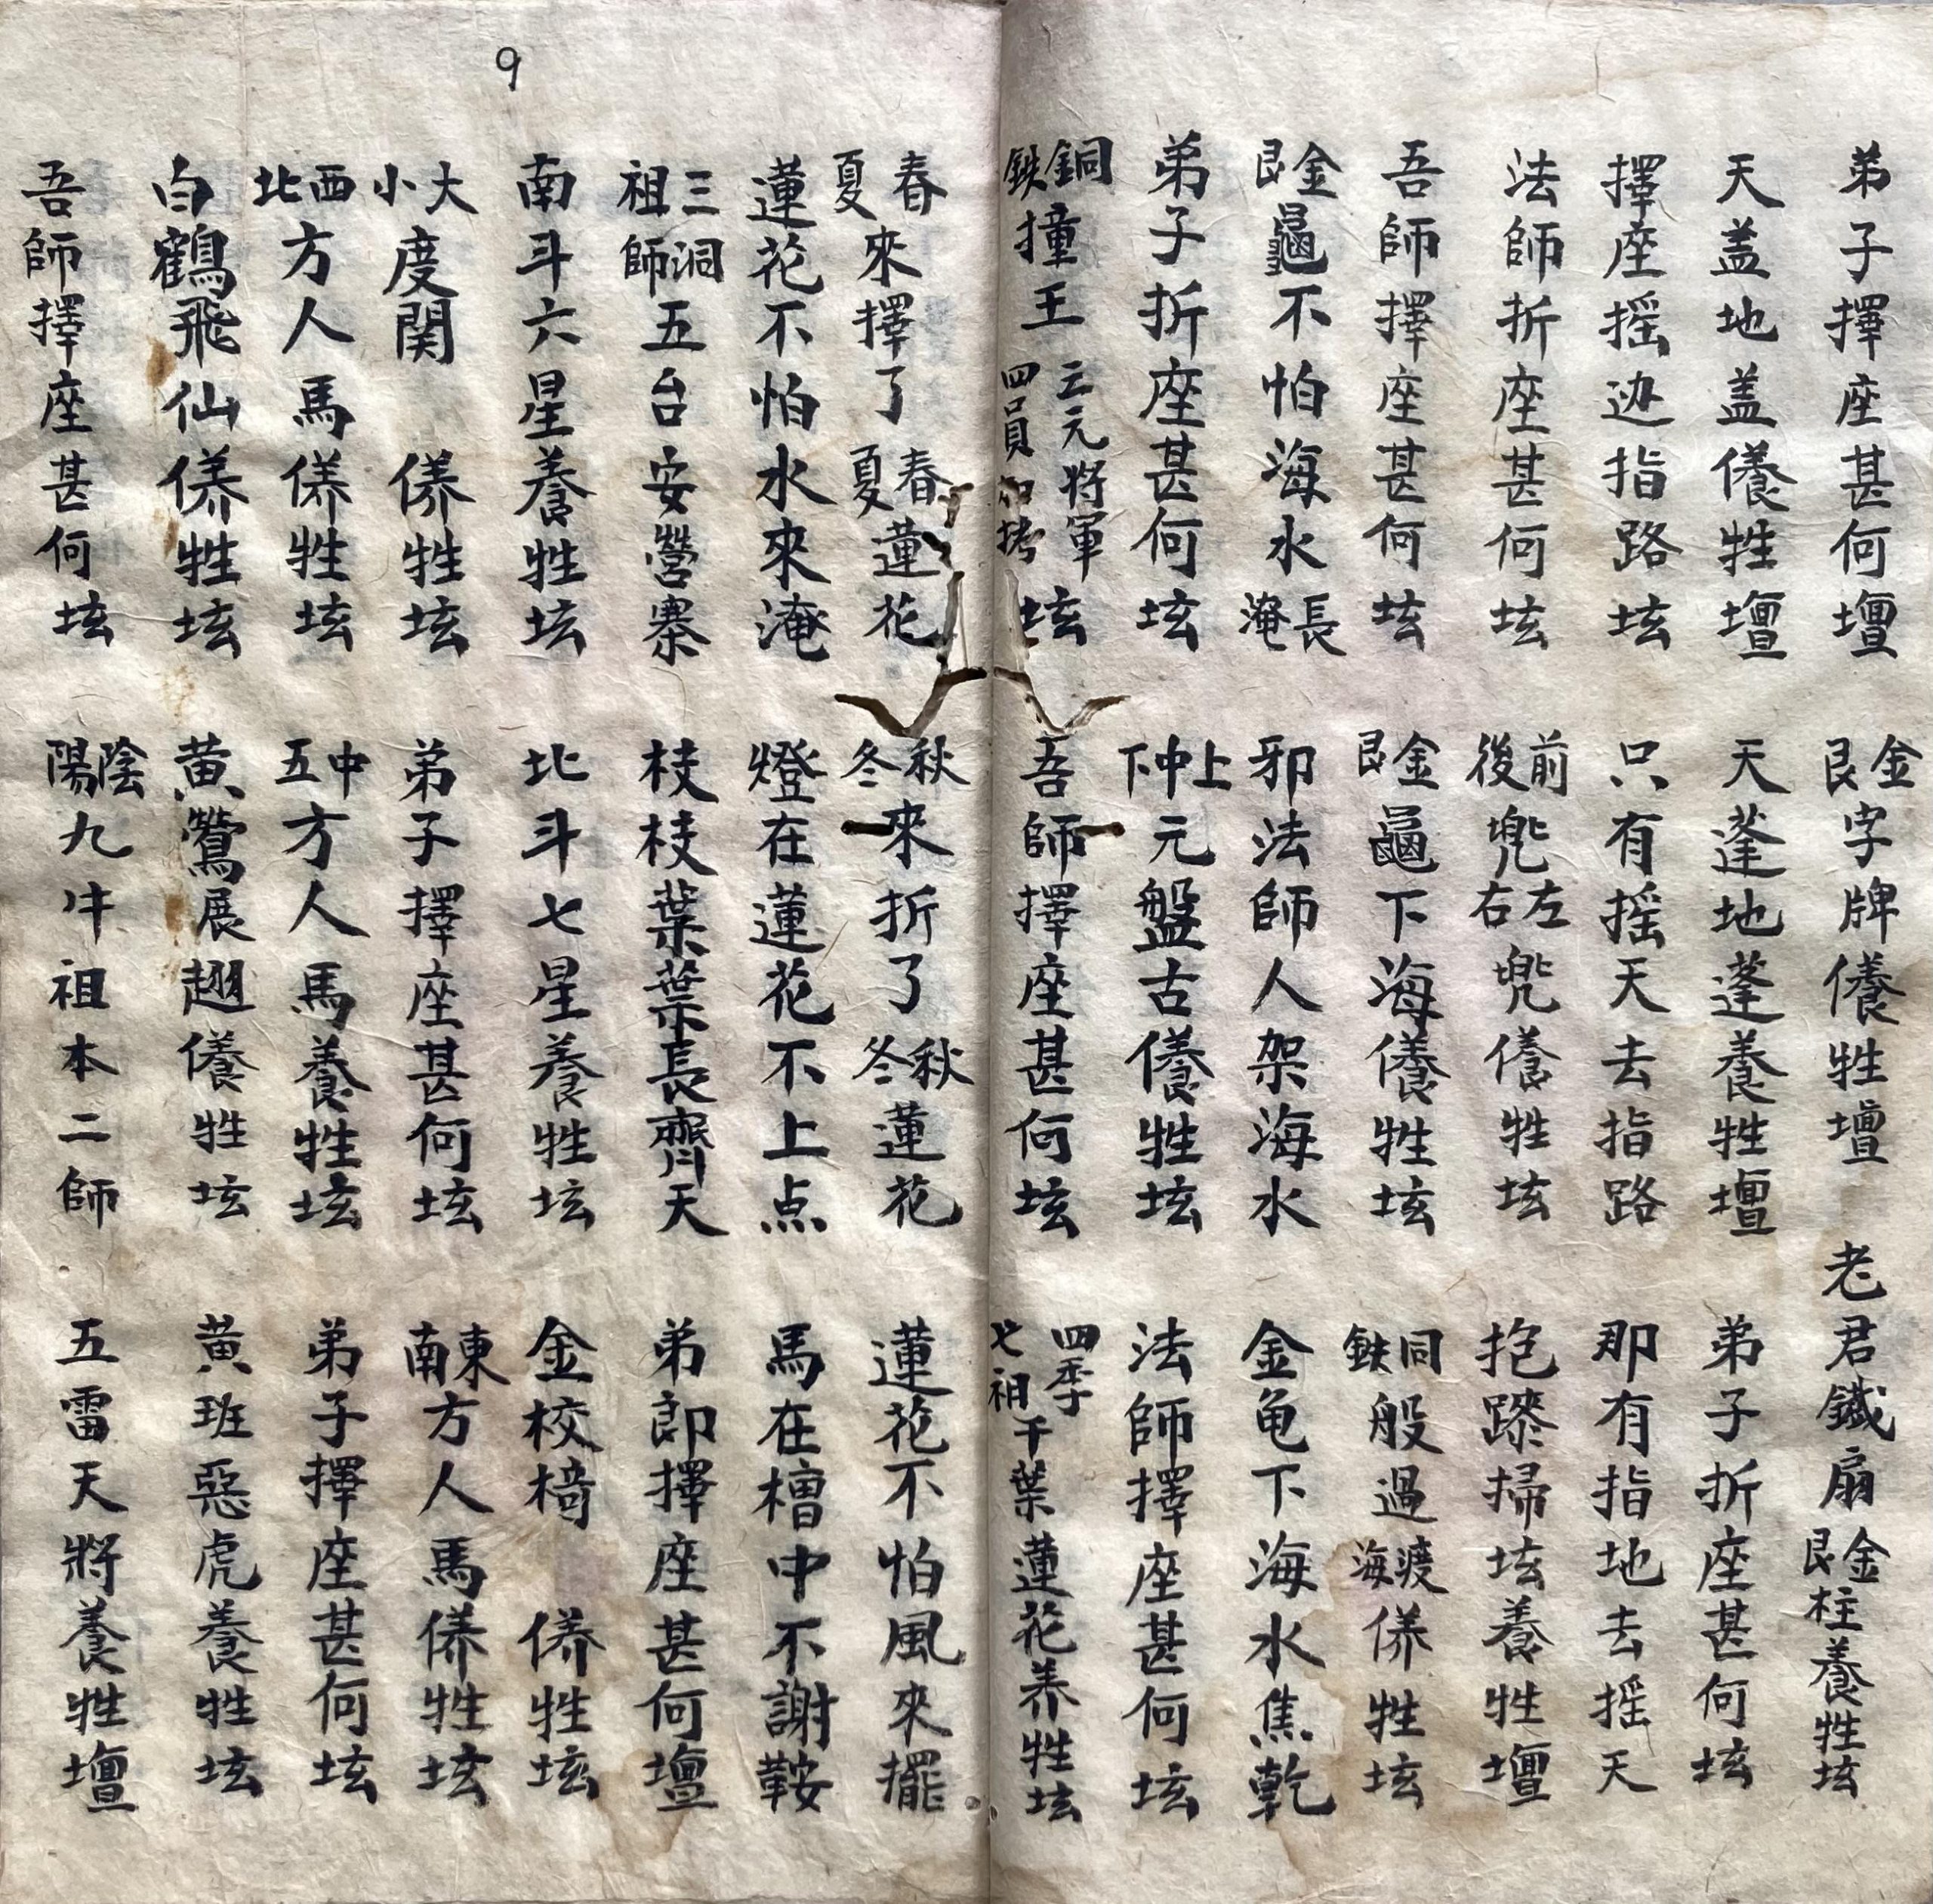 弟子擇座甚何壇　金艮字牌儀牲壇　老君鐡扇金艮柱養牲坛
天盖地盖儀牲壇　天蓬地蓬養牲壇　弟子折座甚何坛
擇座摇边指路坛　只有摇天去指路　那有指地去摇天
法師折座甚何坛　前後兠左右兠儀牲坛　抱蹽掃坛養牲壇
吾師擇座甚何坛　金艮龜下海儀牲坛　同鉄般過渡海侎牲坛
金艮龜不怕海水長淹　邪法師人架海水　金龟下海水焦乾
弟子折座甚何坛　上中下元盤古儀牲坛　法師擇座甚何坛
銅鉄撞王三元將軍四員　坛　吾師擇座甚何坛　四季七祖千葉蓮花养牲坛
9
春夏來擇了春夏蓮花　秋冬來折了秋冬蓮花　蓮花不怕風來擺
蓮花不怕水來淹　燈在蓮花不上点　馬在槽中不謝鞍
三洞祖師五台安營寨　枝枝葉葉長齊天　弟郎擇座甚何壇
南斗六星養牲坛　北斗七星養牲坛　金校椅　侎牲坛
大小度関　侎牲坛　弟子擇座甚何坛　東南方人馬侎牲坛
西北方人馬侎牲坛　中五方人馬養牲坛　弟子擇座甚何坛
白鶴飛仙侎牲坛　黄鶯展翅儀牲坛　黄班惡虎養牲坛
吾師擇座甚何坛　陰陽九牛祖本二師　五雷天將養牲壇